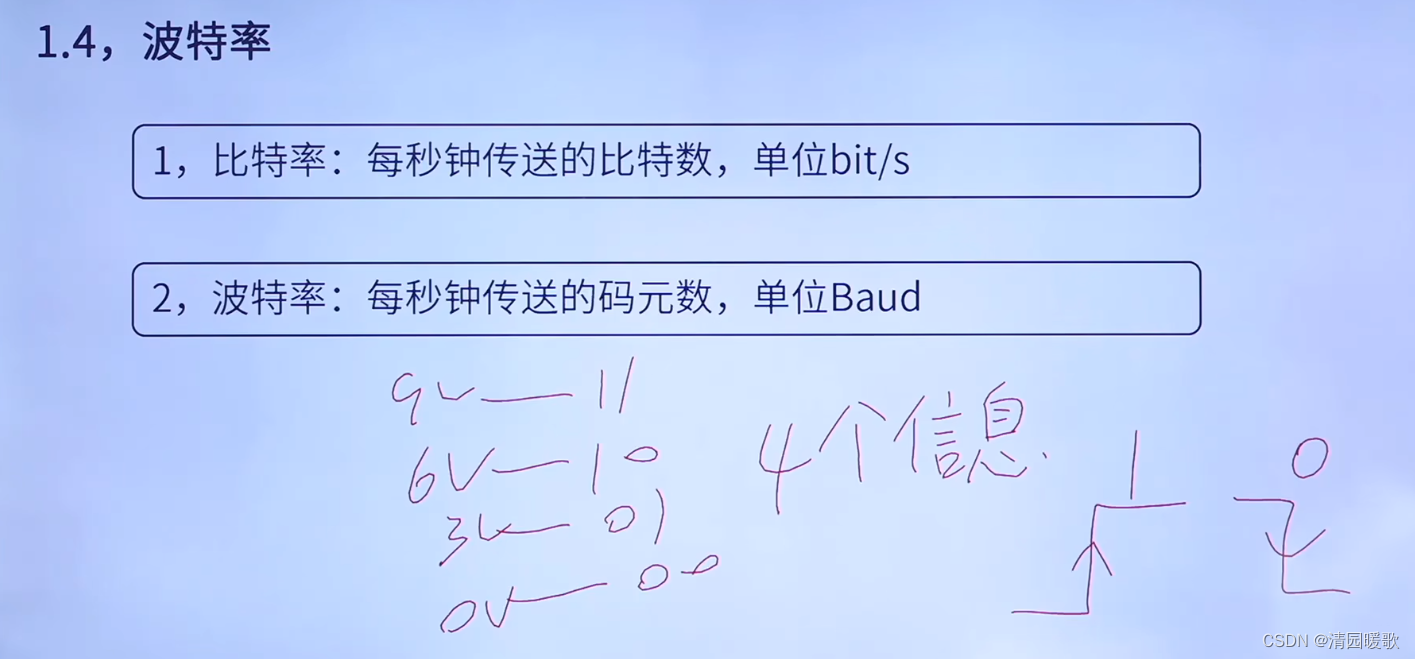 1.4，波特率
1，比特率：每秒钟传送的比特数，单位bit/s
2，波特率：每秒钟传送的码元数，单位Baud
9V—11
6V—10
3V—01
0V—00
4个信息.
1
0
CSDN @清园暖歌